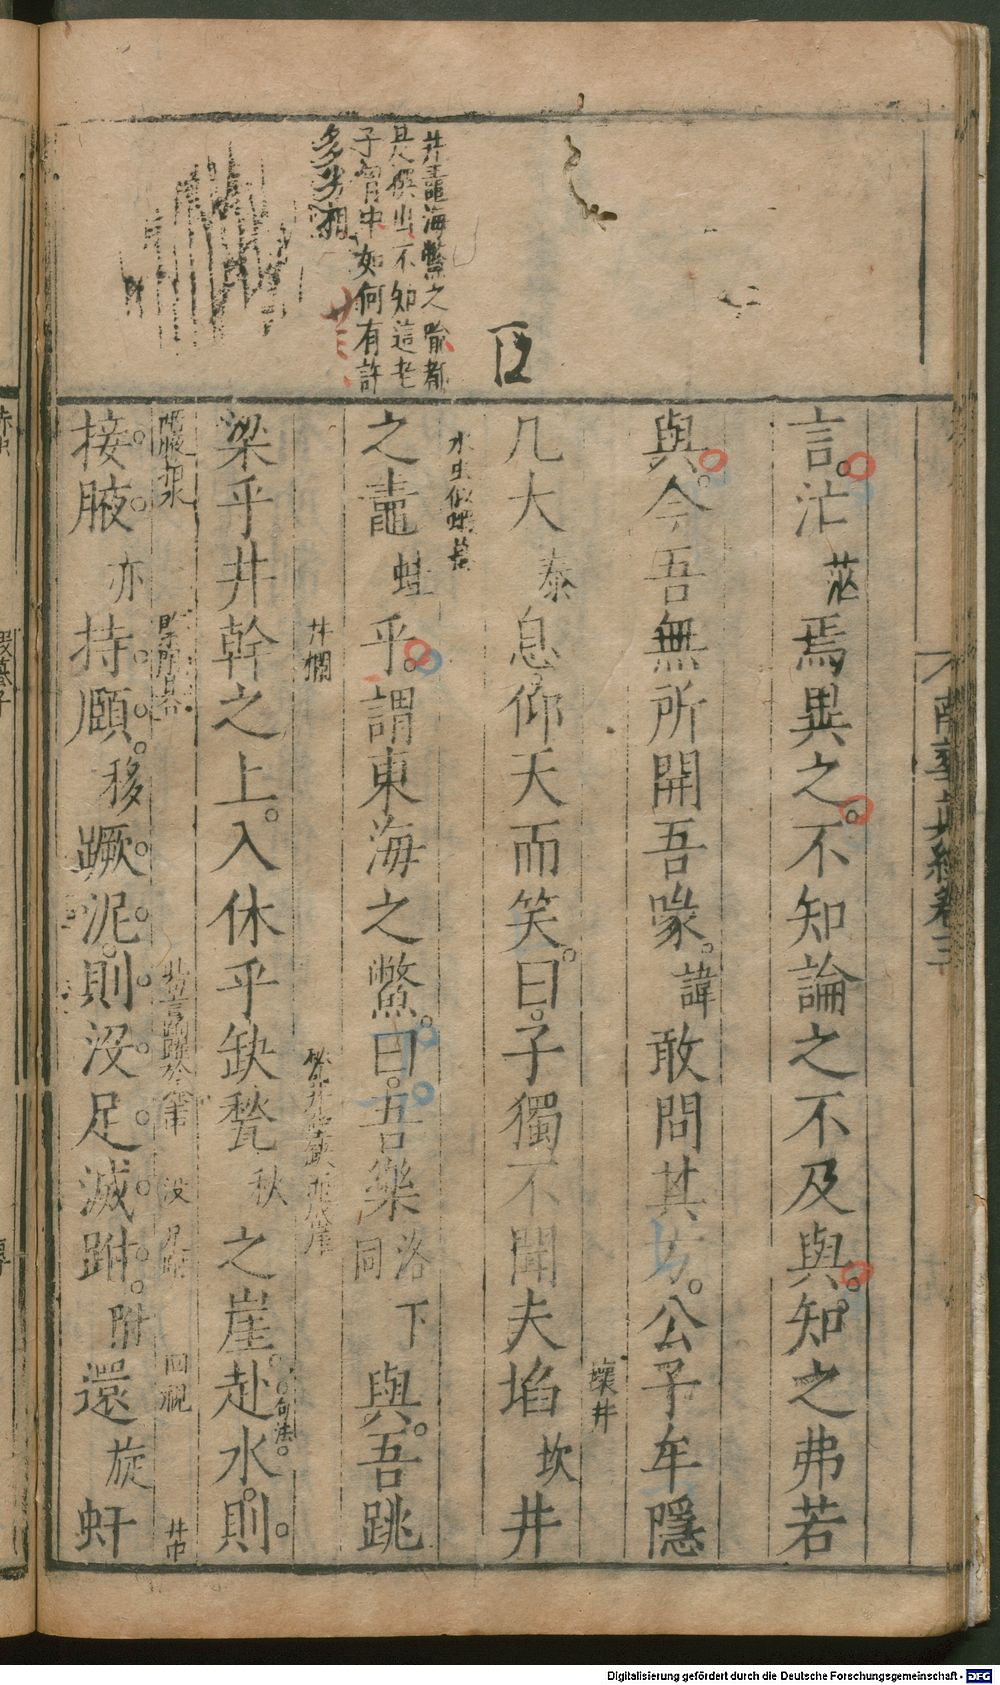 南華真經卷三
井鼃海鱉之喻都
是撰出不知這老
子胷中如何有許
多
言茫茫焉異之不知論之不及與知之弗若
與今吾無所開吾喙諱敢問其方公子牟隱
壞井
几大泰息仰天而笑曰子獨不聞夫埳坎井
水虫似蝦蟇
之鼃蛙乎謂東海之鱉曰吾樂洛下同與吾跳
井欄
梁乎井幹之上入休乎缺甃秋之崖赴水則
句法
接腋亦持頤移蹶泥則沒足滅跗附還旋虷
回視
井中
Digitalisierung gefördert durch die Deutsche Forschungsgemeinschaft - DFG